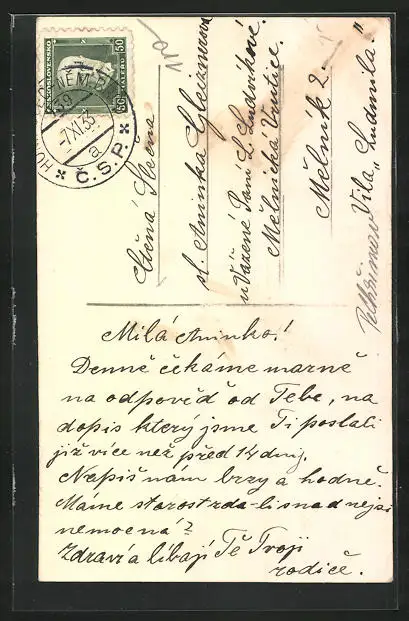 ČESKOSLOVENSKO
50 50
HALÉŘŮ
NĚM.
-7.XI.35
a
* Č.S.P. *
Ctěná Slečna
sl. Aninka
u Vážené Paní L. Ludvíkové
Mělnická Vrutice.
Mělník 2.
Vila „Ludmila"
Milá Aninko!
Denně čekáme marně
na odpověď od Tebe, na
dopis který jsme Ti poslali
již více než před 14 dny.
Napiš nám brzy a hodně.
Máme starost zda-li snad nejsi
nemocná?
Zdraví a líbají Tě Tvoji
rodiče.